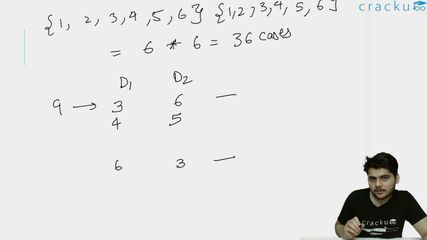 {1, 2, 3, 4, 5, 6} {1, 2, 3, 4, 5, 6}
= 6 * 6 = 36 cases
D1 D2
9 → 3 6 —
4 5
6 3 —
cracku
cracku